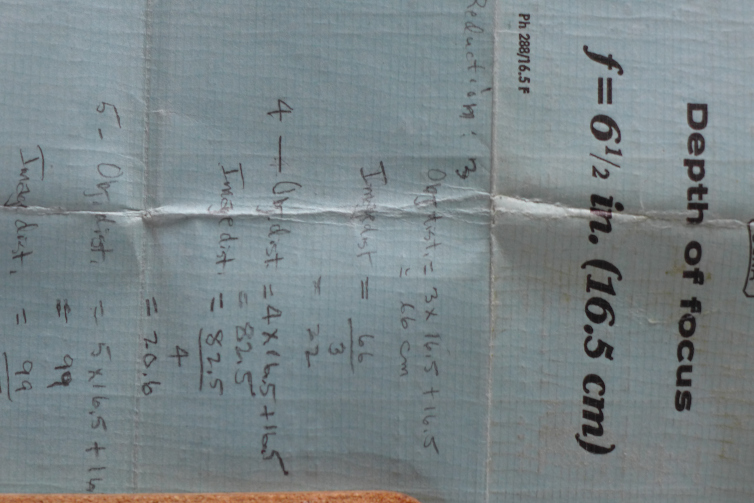 Depth of focus
f = 6½ in. (16.5 cm)
Ph 288/16.5 F
Reduction: 3
Obj. dist. = 3 x 16.5 + 16.5
= 66 cm
Image dist = 66
3
= 22
4 — Obj. dist = 4 x 16.5 + 16.5
= 82.5
Image dist. = 82.5
4
= 20.6
5 - Obj. dist. = 5 x 16.5 + 16
= 99
Image dist. = 99